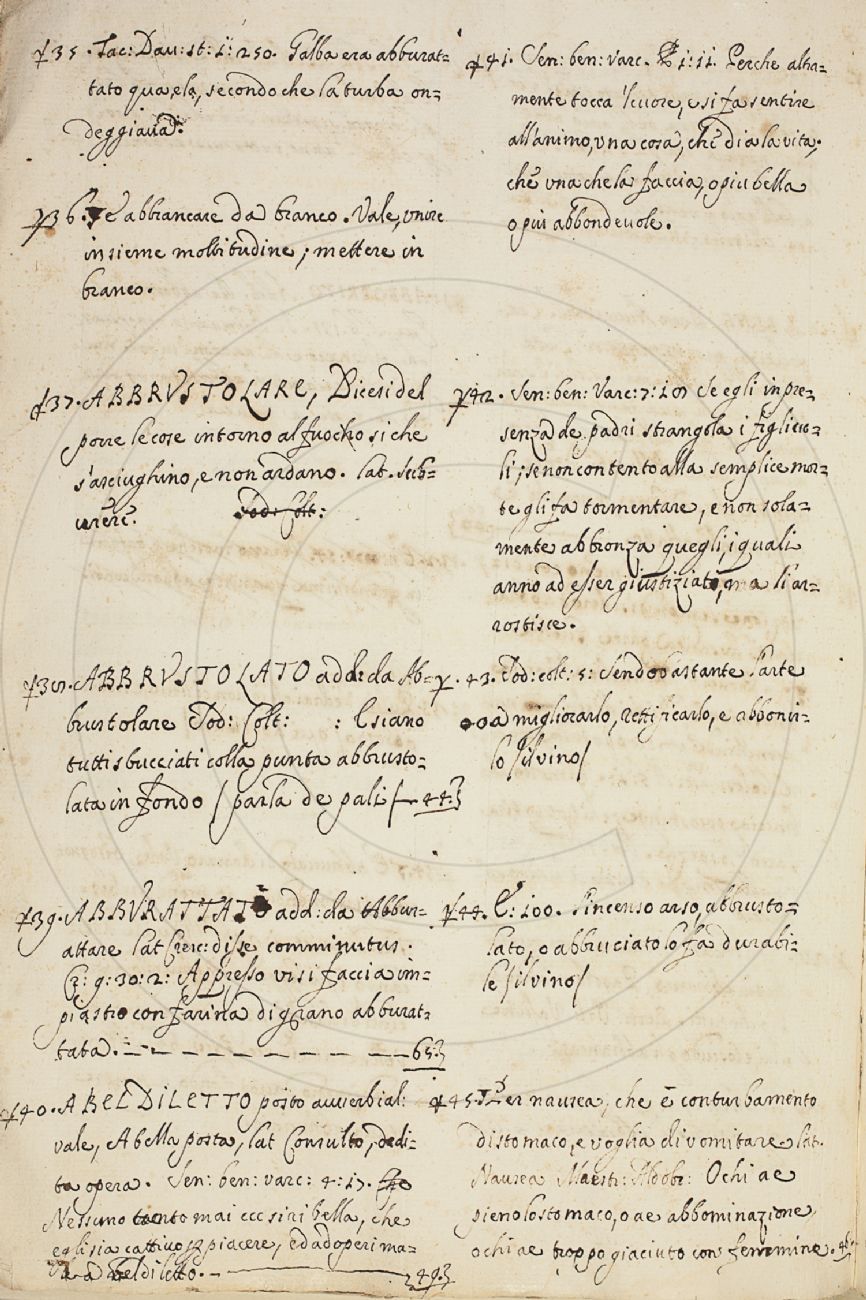 35. Tac: Dav: st: 1: 250. Galba era abburat=
tato qua, e là, secondo che la turba on=
deggiava.
36. e abbrancare da branco. Vale, unire
insieme moltitudine; mettere in
branco.
37. ABBRVSTOLARE, Dicesi del
porre le cose intorno al fuocho si che
s'asciughino, e non ardano. lat. sub=
urere. Sod: Colt:
38. ABBRVSTOLATO add: da Ab=
brustolare Sod: Colt: : E siano
tutti sbucciati colla punta abbrusto=
lata in fondo / parla de pali / 44
39. ABBVRATTATO add: da Abbur=
attare lat Cresc: disse comminutus.
Cr: 9: 30: 2: Appresso vi si faccia im=
piastro con farina di grano aburat=
tata. 65
40. A BEL DILETTO posto avverbial:
vale, A bella posta, lat Consulto, dedi=
ta opera. Sen: ben: varc: 4: 17.
Nessuno tanto mai ecc si ribella, che
egli sia cattivo per piacere, ed adoperi ma=
le a bel diletto. 249
41. Sen: ben: varc. 1: 11. Perche alta=
mente tocca 'l cuore, e si fa sentire
all'animo, una cosa, che dia la vita,
che una che la faccia, o piu bella
o piu abbondevole.
42. Sen: ben: Varc: 7: 19 Se egli in pre=
senza de padri strangola i figliuo=
li; se non contento alla semplice mor=
te gli fa tormentare, e non sola=
mente abbronza quegli, i quali
anno ad esser giustiziati, ma li ar=
rostisce.
43. Sod: colt: 5: Sendo bastante l'arte
a migliorarlo, rettificarlo, e abbonir=
lo / ilvino /
44. E: 100. L'incenso arso, abbrusto=
lato, o abbruciato lo fa durabi=
le / ilvino /
45. Per nausea, che è conturbamento
di stomaco, e voglia di vomitare lat.
Nausea Maestr: Aldobr: O chi ae
pieno lo stomaco, o ae abbominazione
o chi ae troppo giaciuto con femmine.